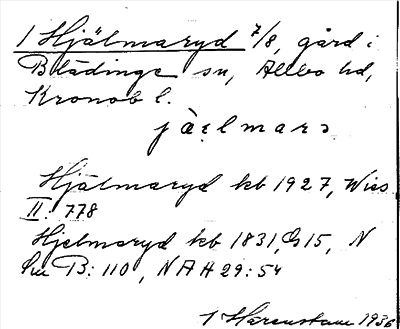 1 Hjälmaryd 7/8, gård i
Blädinge sn, Allbo hd,
Kronob l.
jàɛlmarɔ
Hjälmaryd kb 1927, Wies
II: 778
Hjelmaryd kb 1831, G15, N
B: 110, NAH 29: 54
1 Härenstam 1936